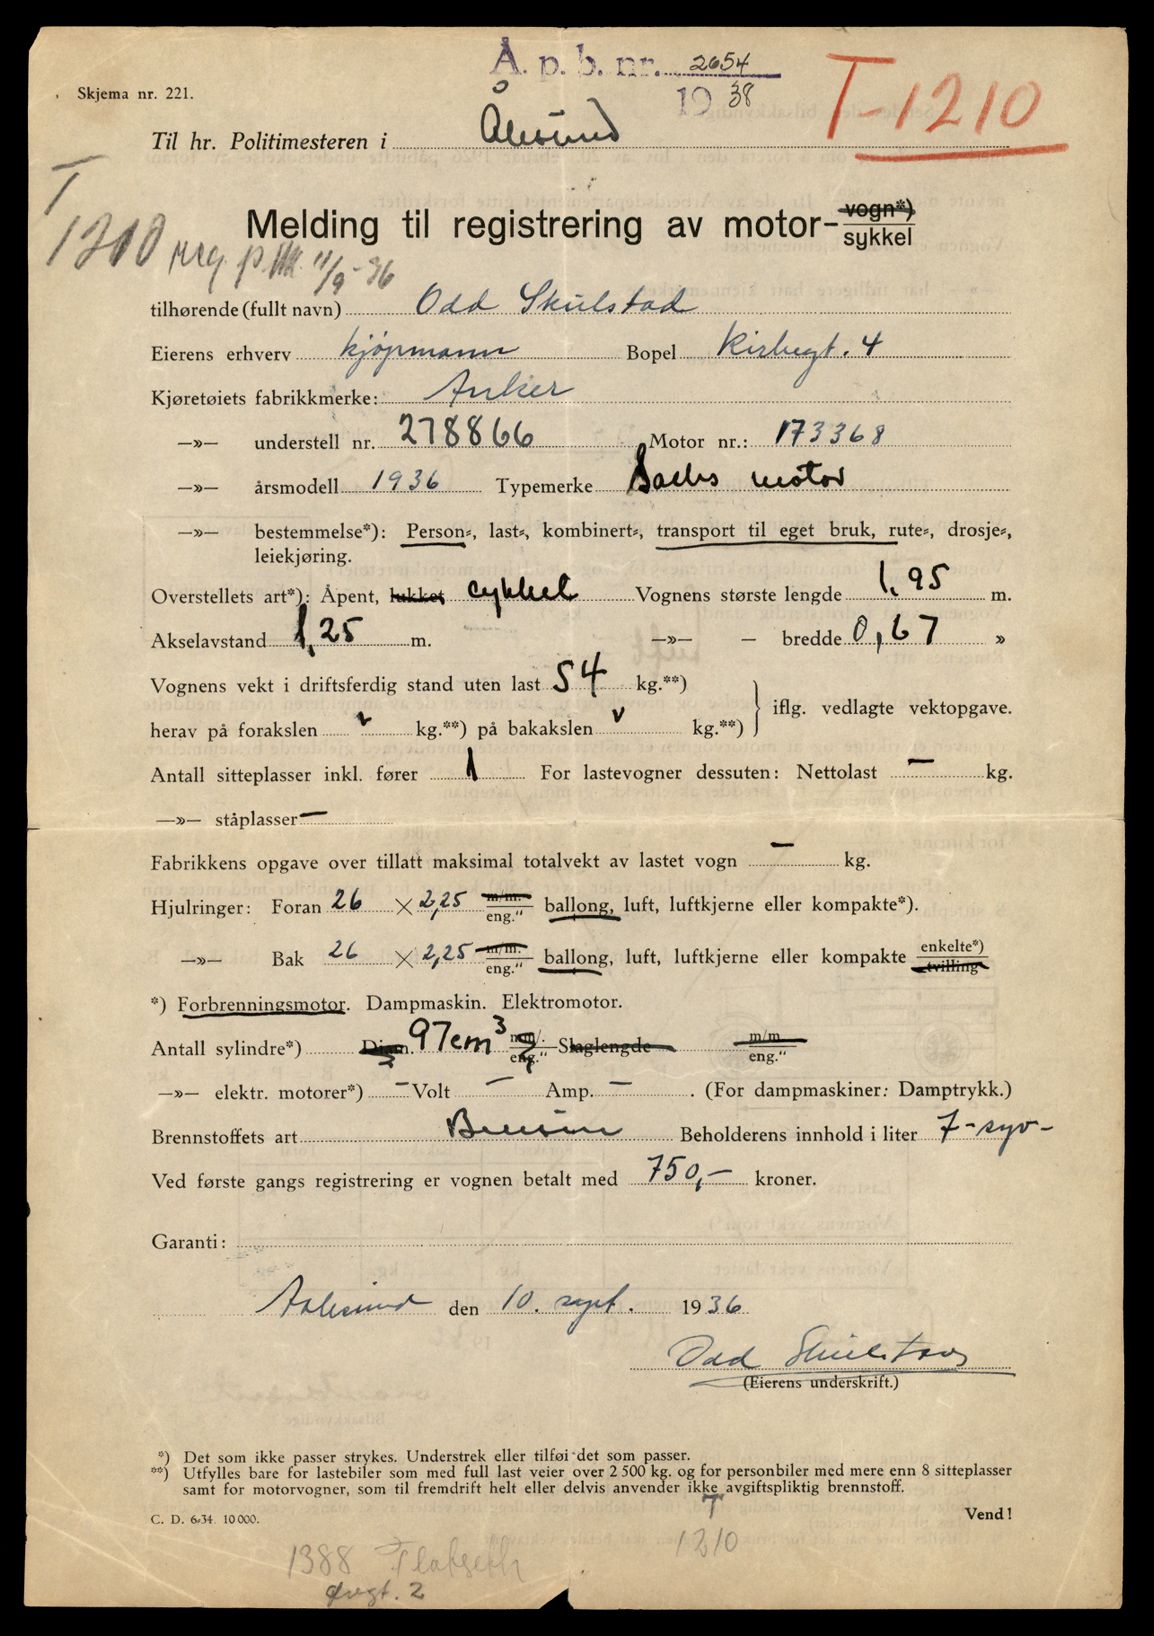 Å. p. b. nr. 2654
1938
T-1210
Skjema nr. 221.
Til hr. Politimesteren i Ålesund
T
1210 reg. 11/9-36
Melding til registrering av motor-vogn*)
sykkel
tilhørende (fullt navn) Odd Skulstad
Eierens erhverv kjøpmann Bopel Kirkegt. 4
Kjøretøiets fabrikkmerke: Anker
—»— understell nr. 278866 Motor nr.: 173368
—»— årsmodell 1936 Typemerke Sachs motor
—»— bestemmelse*): Person-, last-, kombinert-, transport til eget bruk, rute-, drosje-,
leiekjøring.
Overstellets art*): Åpent, lukket cykkel Vognens største lengde 1,95 m.
Akselavstand 1,25 m. —»— — bredde 0,67 »
Vognens vekt i driftsferdig stand uten last 54 kg.**)
herav på forakslen v kg.**) på bakakslen v kg.**) } iflg. vedlagte vektopgave.
Antall sitteplasser inkl. fører 1 For lastevogner dessuten: Nettolast — kg.
—»— ståplasser —
Fabrikkens opgave over tillatt maksimal totalvekt av lastet vogn — kg.
Hjulringer: Foran 26 × 2,25 m/m. eng.“ ballong, luft, luftkjerne eller kompakte*).
—»— Bak 26 × 2,25 m/m. eng.“ ballong, luft, luftkjerne eller kompakte enkelte*) tvilling
*) Forbrenningsmotor. Dampmaskin. Elektromotor.
Antall sylindre*) Diam. 97cm³ mm/. eng.“ Slaglengde m/m eng.“
—»— elektr. motorer*) — Volt — Amp. — . (For dampmaskiner: Damptrykk.)
Brennstoffets art Bensin Beholderens innhold i liter 7-syv-
Ved første gangs registrering er vognen betalt med 750,— kroner.
Garanti:
Aalesund den 10. sept. 1936
Odd Skulstad
(Eierens underskrift.)
*) Det som ikke passer strykes. Understrek eller tilføi det som passer.
**) Utfylles bare for lastebiler som med full last veier over 2 500 kg. og for personbiler med mere enn 8 sitteplasser
samt for motorvogner, som til fremdrift helt eller delvis anvender ikke avgiftspliktig brennstoff.
C. D. 6-34. 10 000.
Vend!
T
1210
1388 Flatseth
Øvgt. 2